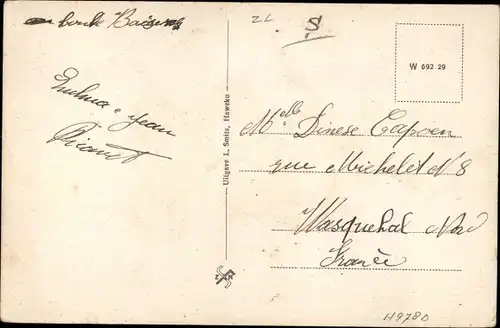 bons Baisers
ZL
S
W 692 29
Jean
Uitgave L. Smits, Haweko
Mlle Denise Capoen
rue Michelet N 8
Wasquehal Nord
France
H9780